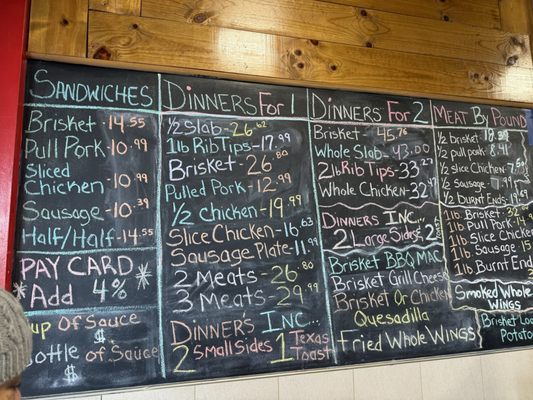 SANDWICHES
Brisket - 14.55
Pull Pork - 10.99
Sliced
Chicken - 10.99
Sausage - 10.39
Half/Half - 14.55
PAY CARD
Add 4%
Cup OF Sauce
$
Bottle OF Sauce
$
DINNERS FOR 1
½ Slab - 26.62
1lb Rib Tips - 17.99
Brisket - 26.80
Pulled Pork - 12.99
½ Chicken - 19.99
Slice Chicken - 16.63
Sausage Plate - 11.99
2 Meats - 26.80
3 Meats - 29.99
DINNERS INC...
2 Small Sides 1 Texas Toast
DINNERS FOR 2
Brisket - 45.76
Whole Slab - 43.00
2lb Rib Tips - 33.27
Whole Chicken - 32.47
DINNERS INC...
2 Large Sides 2
Brisket BBQ MAC
Brisket Grill Cheese
Brisket Or Chicken
Quesadilla
Fried Whole Wings
MEAT BY POUND
½ brisket
½ pull pork - 8.41
½ Slice Chicken
½ Sausage
½ burnt Ends
1lb Brisket
1lb Pull Pork
1lb Slice Chicken
1lb Sausage
1lb Burnt End
Smoked Whole
WINGS
Brisket
Potato